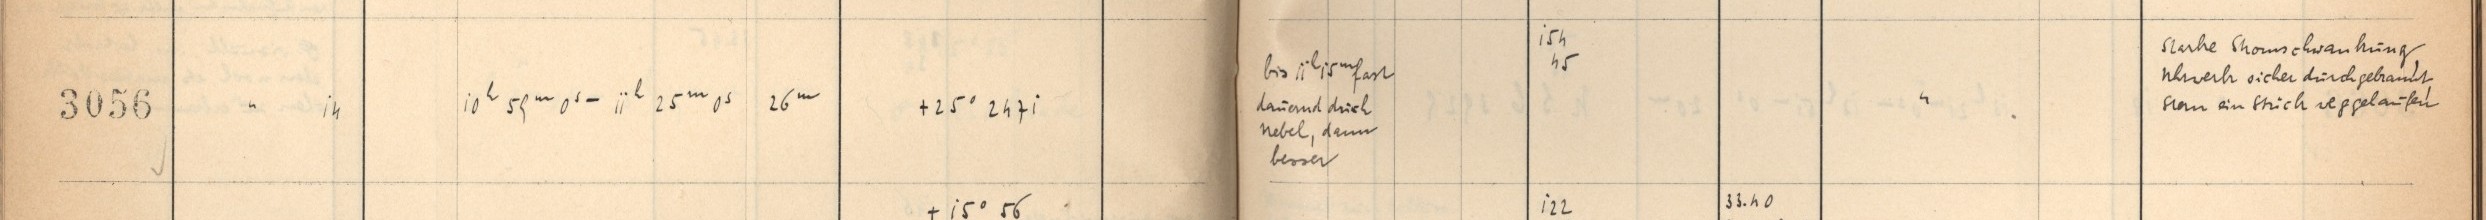 3056 " 14 10h 59m 0s – 11h 25m 0s 26m +25° 2471
bis 11h 15m fast
dauernd durch
Nebel, dann
besser
154
45
"
Starke Stromschwankung,
Uhrwerk sicher durchgebrannt
Stern ein Stück weggelaufen
+ 15° 56 122 33.40